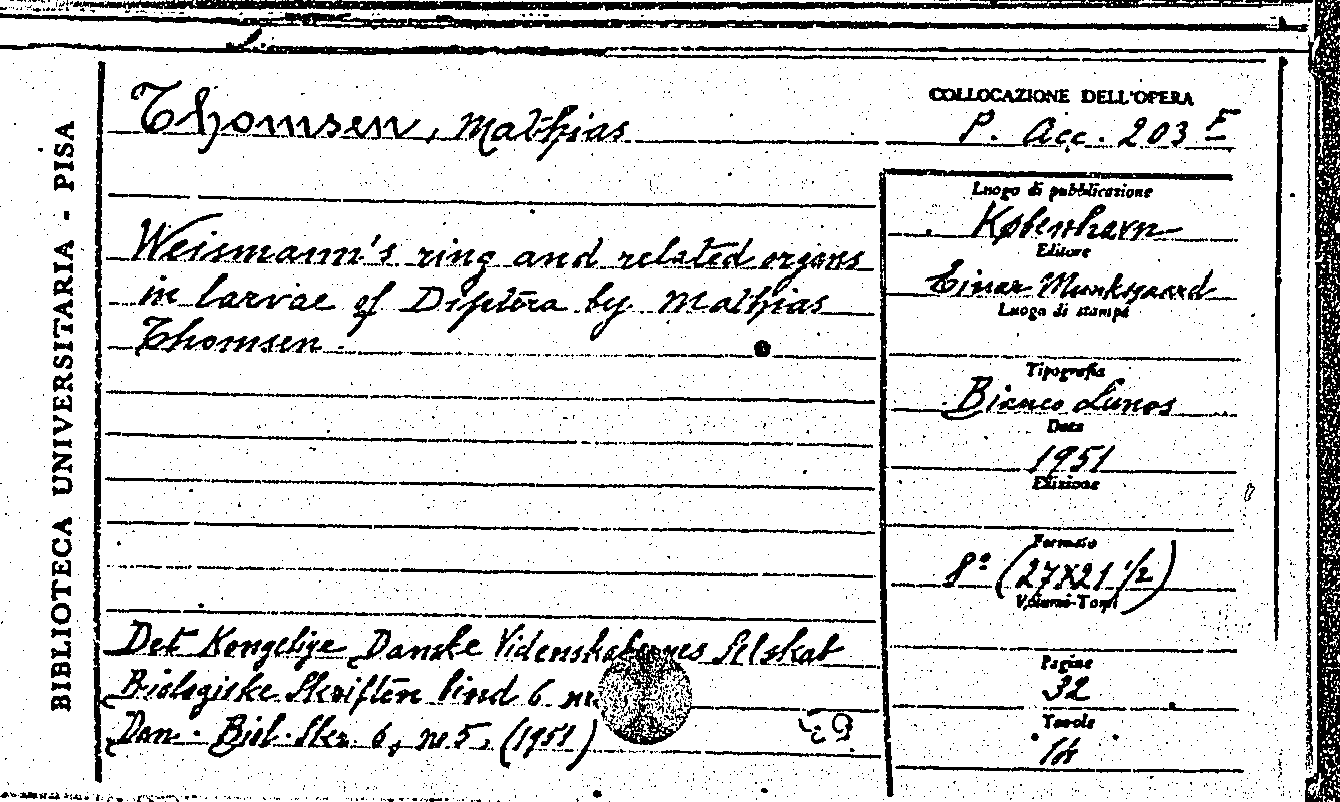 BIBLIOTECA UNIVERSITARIA - PISA
Thomsen, Mathias
COLLOCAZIONE DELL'OPERA
P. Acc. 203 F
Weismann's ring and related organs
in larvae of Diptera by Mathias
Thomsen.
Luogo di pubblicazione
København
Editore
Einar Munksgaard
Luogo di stampa
Tipografia
Bianco Lunos
Data
1951
Edizione
Formato
8º (27X21 1/2)
Volumi-Tomi
Pagine
32
Tavole
Det Kongelige Danske Videnskabernes Selskab
Biologiske Skrifter bind 6 nr.
Dan. Biol. Skr. 6, nr 5, (1951)